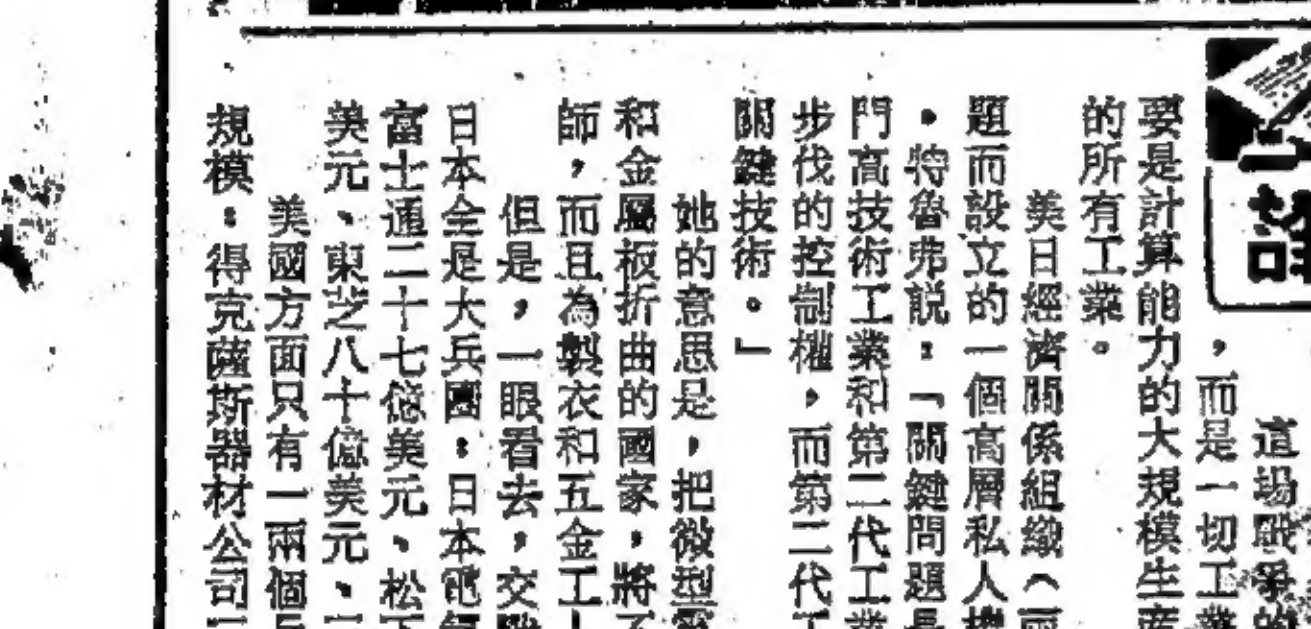 這場戰爭的
，而是一切工業
要是計算能力的大規模生産
的所有工業。
美日經濟關係組織（兩
題而設立的一個高層私人機
·特魯弗説：「關鍵問題是
門高技術工業和第二代工業
步伐的控制權，而第二代工
關鍵技術。」
她的意思是，把微型電
和金屬板折曲的國家，將不
師，而且為製衣和五金工
但是，一眼看去，交戰
日本全是大兵團：日本電氣
富士通二十七億美元、松下
美元、東芝八十億美元、三
美國方面只有一兩個
規模：得克薩斯器材公司